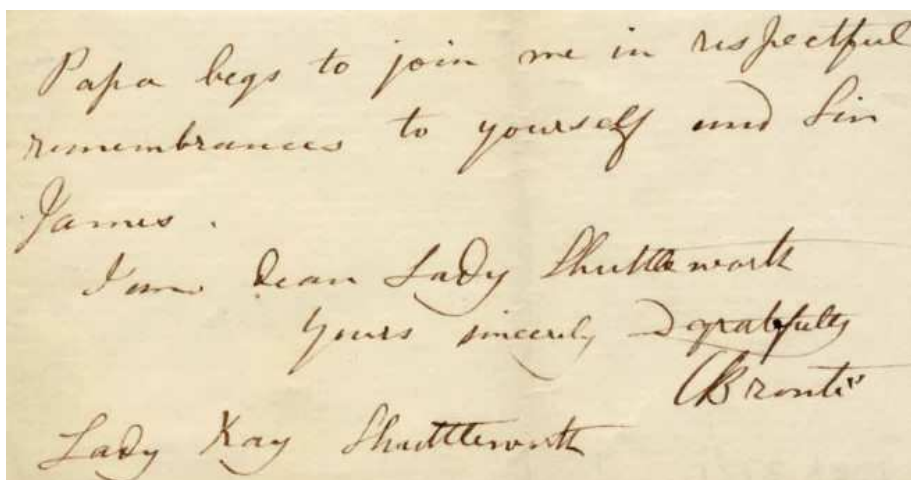 Papa begs to join me in respectful
remembrances to yourself and Sir
James.
I am dear Lady Shuttleworth
Yours sincerely & gratefully
CBrontë
Lady Kay Shuttleworth